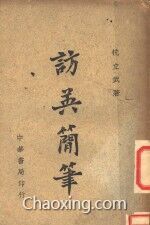 杭立武著
訪英簡筆
中華書局印行
Chaoxing.com